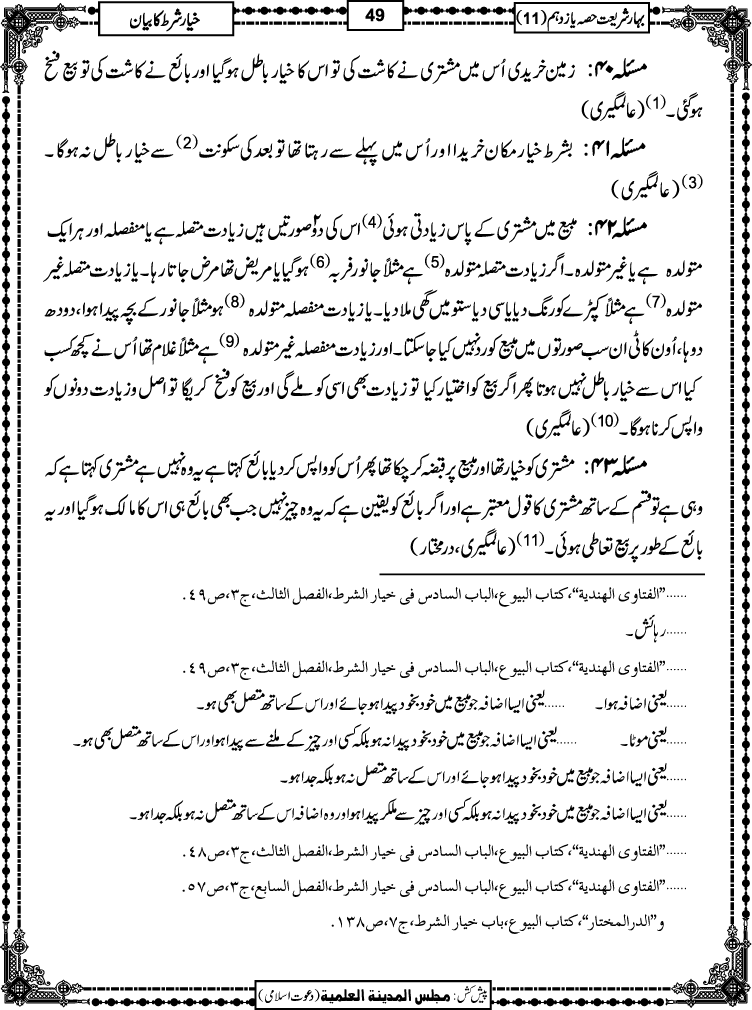 بہار شریعت حصہ یازدہم (11)
49
خیار شرط کا بیان
مسئلہ ۴۰: زمین خریدی اُس میں مشتری نے کاشت کی تو اس کا خیار باطل ہوگیا اور بائع نے کاشت کی تو بیع فسخ
ہوگئی۔(1) (عالمگیری)
مسئلہ ۴۱: بشرط خیار مکان خریدا اور اُس میں پہلے سے رہتا تھا تو بعد کی سکونت(2) سے خیار باطل نہ ہوگا۔
(3) (عالمگیری)
مسئلہ ۴۲: مبیع میں مشتری کے پاس زیادتی ہوئی(4) اس کی دو۲ صورتیں ہیں زیادت متصلہ ہے یا منفصلہ اور ہر ایک
متولدہ ہے یا غیر متولدہ۔ اگر زیادت متصلہ متولدہ(5) ہے مثلاً جانور فربہ(6) ہوگیا یا مریض تھا مرض جاتا رہا۔ یا زیادت متصلہ غیر
متولدہ(7) ہے مثلاً کپڑے کو رنگ دیا یا سی دیا ستو میں گھی ملا دیا۔ یا زیادت منفصلہ متولدہ (8) ہو مثلاً جانور کے بچہ پیدا ہوا، دودھ
دوہا، اُون کاٹی ان سب صورتوں میں مبیع کو رد نہیں کیا جاسکتا۔ اور زیادت منفصلہ غیر متولدہ (9) ہے مثلاً غلام تھا اُس نے کچھ کسب
کیا اس سے خیار باطل نہیں ہوتا پھر اگر بیع کو اختیار کیا تو زیادت بھی اسی کو ملے گی اور بیع کو فسخ کریگا تو اصل و زیادت دونوں کو
واپس کرنا ہوگا۔(10) (عالمگیری)
مسئلہ ۴۳: مشتری کو خیار تھا اور مبیع پر قبضہ کر چکا تھا پھر اُس کو واپس کر دیا بائع کہتا ہے یہ وہ نہیں ہے مشتری کہتا ہے کہ
وہی ہے تو قسم کے ساتھ مشتری کا قول معتبر ہے اور اگر بائع کو یقین ہے کہ یہ وہ چیز نہیں جب بھی بائع ہی اس کا مالک ہوگیا اور یہ
بائع کے طور پر بیع تعاطی ہوئی۔(11) (عالمگیری، درمختار)
......"الفتاوی الهندیة"، کتاب البیوع، الباب السادس فی خیار الشرط، الفصل الثالث، ج۳، ص۴۹.
......رہائش۔
......"الفتاوی الهندیة"، کتاب البیوع، الباب السادس فی خیار الشرط، الفصل الثالث، ج۳، ص۴۹.
......یعنی اضافہ ہوا۔ ......یعنی ایسا اضافہ جو مبیع میں خود بخود پیدا ہو جائے اور اس کے ساتھ متصل بھی ہو۔
......یعنی موٹا۔ ......یعنی ایسا اضافہ جو مبیع میں خود بخود پیدا نہ ہو بلکہ کسی اور چیز کے ملنے سے پیدا ہو اور اس کے ساتھ متصل بھی ہو۔
......یعنی ایسا اضافہ جو مبیع میں خود بخود پیدا ہو جائے اور اس کے ساتھ متصل نہ ہو بلکہ جدا ہو۔
......یعنی ایسا اضافہ جو مبیع میں خود بخود پیدا نہ ہو بلکہ کسی اور چیز سے ملکر پیدا ہو اور وہ اضافہ اس کے ساتھ متصل نہ ہو بلکہ جدا ہو۔
......"الفتاوی الهندیة"، کتاب البیوع، الباب السادس فی خیار الشرط، الفصل الثالث، ج۳، ص۴۸.
......"الفتاوی الهندیة"، کتاب البیوع، الباب السادس فی خیار الشرط، الفصل السابع، ج۳، ص۵۷.
و"الدرالمختار"، کتاب البیوع، باب خیار الشرط، ج۷، ص۱۳۸.
پیش کش: مجلس المدینة العلمیة (دعوت اسلامی)